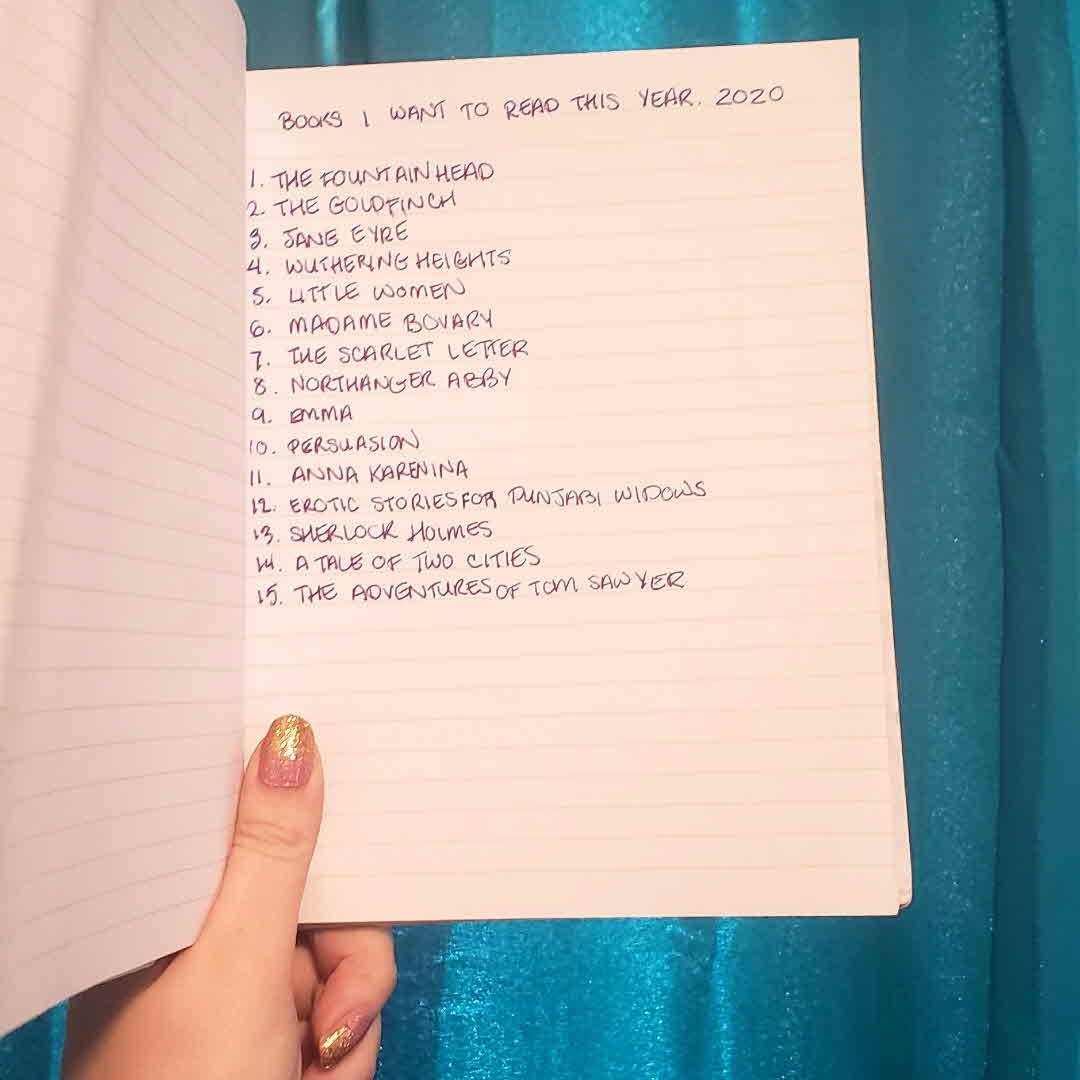 BOOKS I WANT TO READ THIS YEAR. 2020
1. THE FOUNTAINHEAD
2. THE GOLDFINCH
3. JANE EYRE
4. WUTHERING HEIGHTS
5. LITTLE WOMEN
6. MADAME BOVARY
7. THE SCARLET LETTER
8. NORTHANGER ABBY
9. EMMA
10. PERSUASION
11. ANNA KARENINA
12. EROTIC STORIES FOR PUNJABI WIDOWS
13. SHERLOCK HOLMES
14. A TALE OF TWO CITIES
15. THE ADVENTURES OF TOM SAWYER